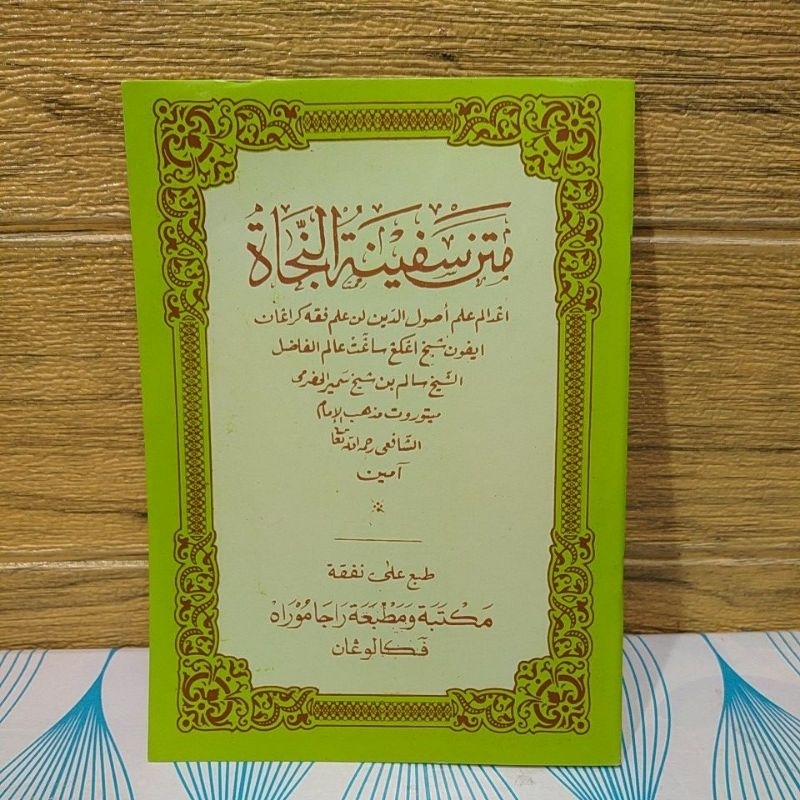 مَتَن سَفِينَةُ النَّجَاةْ
اڠدالم علم أصول الدين لن علم فقه كراڠان
ايفون شيخ اڠكڠ ساڠت عالم الفاضل
الشيخ سالم بن شيخ سمير الحضرمى
ميتوروت مذهب الإمام
الشافعى رحمه الله تعالى
آمين
طبع على نفقة
مَكْتَبَة وَمَطْبَعَة رَاجَا مُوْرَاه
ڤكالوڠان